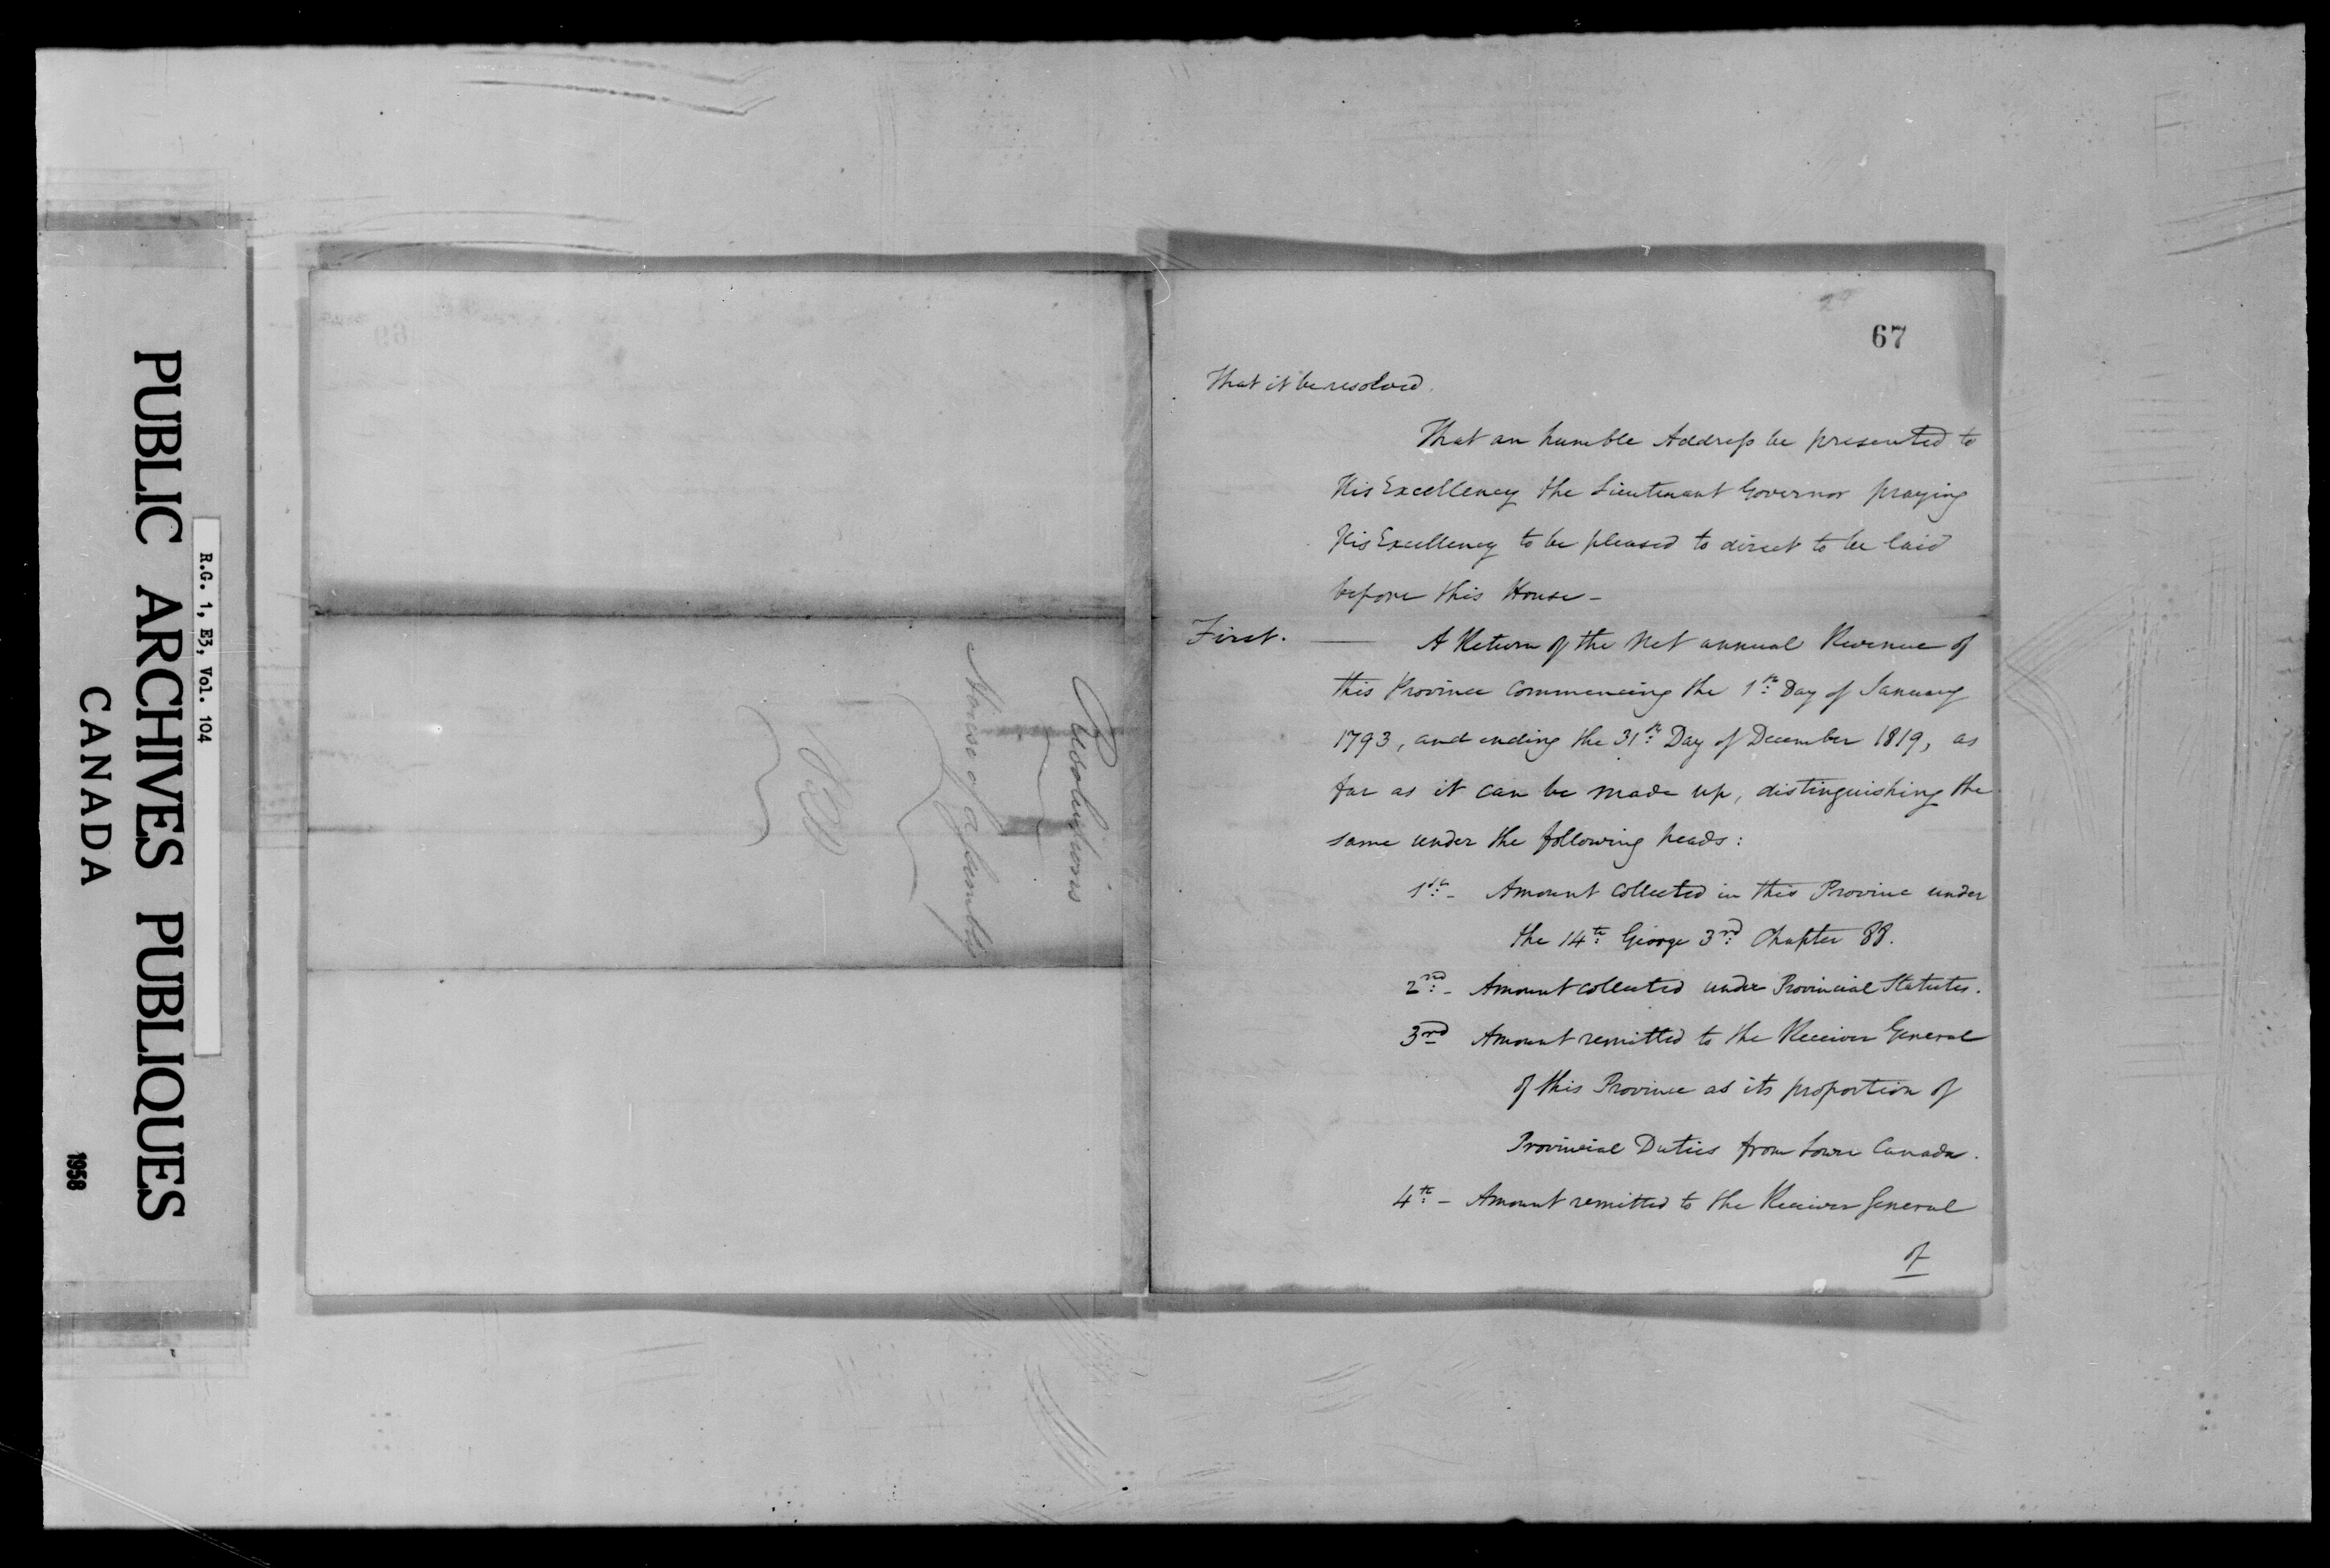 PUBLIC ARCHIVES PUBLIQUES
CANADA
R.G. 1, E3, Vol. 104
1958
Resolutions
House of Assembly
67
That it be resolved.
That an humble Address be presented to
His Excellency the Lieutenant Governor praying
His Excellency to be pleased to direct to be laid
before this House –
First. — A Return of the Net annual Revenue of
this Province commencing the 1st: Day of January
1793, and ending the 31st: Day of December 1819, as
far as it can be made up, distinguishing the
same under the following heads:
1st: – Amount collected in this Province under
the 14th: George 3rd: Chapter 88.
2nd: – Amount collected under Provincial Statutes.
3rd Amount remitted to the Receiver General
of this Province as its proportion of
Provincial Duties from Lower Canada.
4th: – Amount remitted to the Receiver General
of